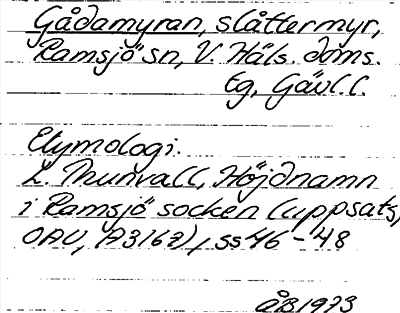 Gådamyran, slåttermyr,
Ramsjö sn, V. Häls. doms.
tg, Gävl. l.
Etymologi.
L. Thunvall, Höjdnamn
i Ramsjö socken (uppsats,
OAU, A3162), ss 46 - 48
ÅB 1973